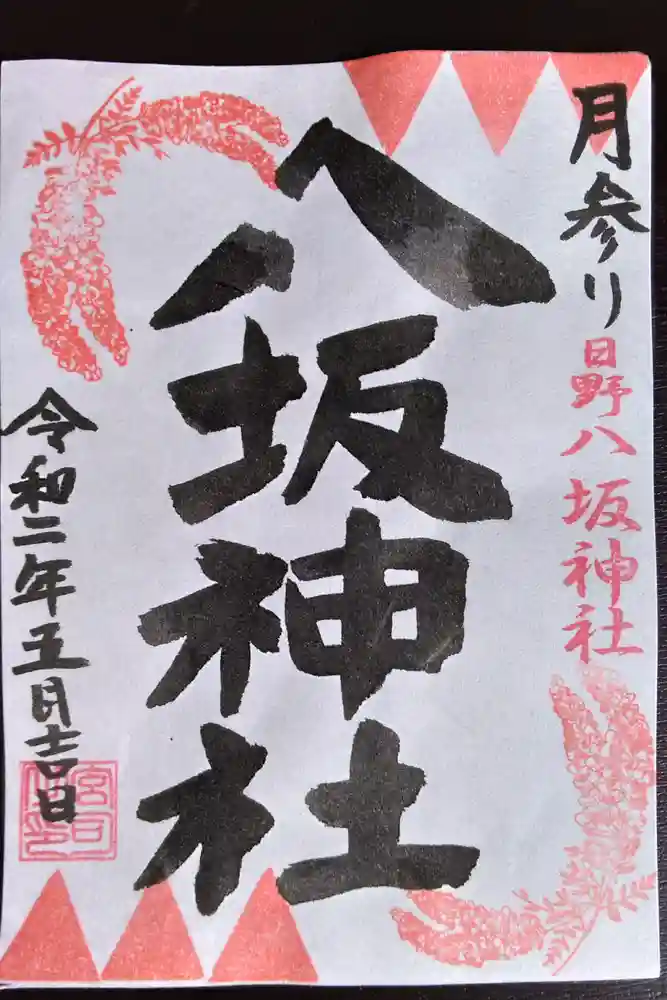 月参り
日野八坂神社
八坂神社
令和二年五月吉日